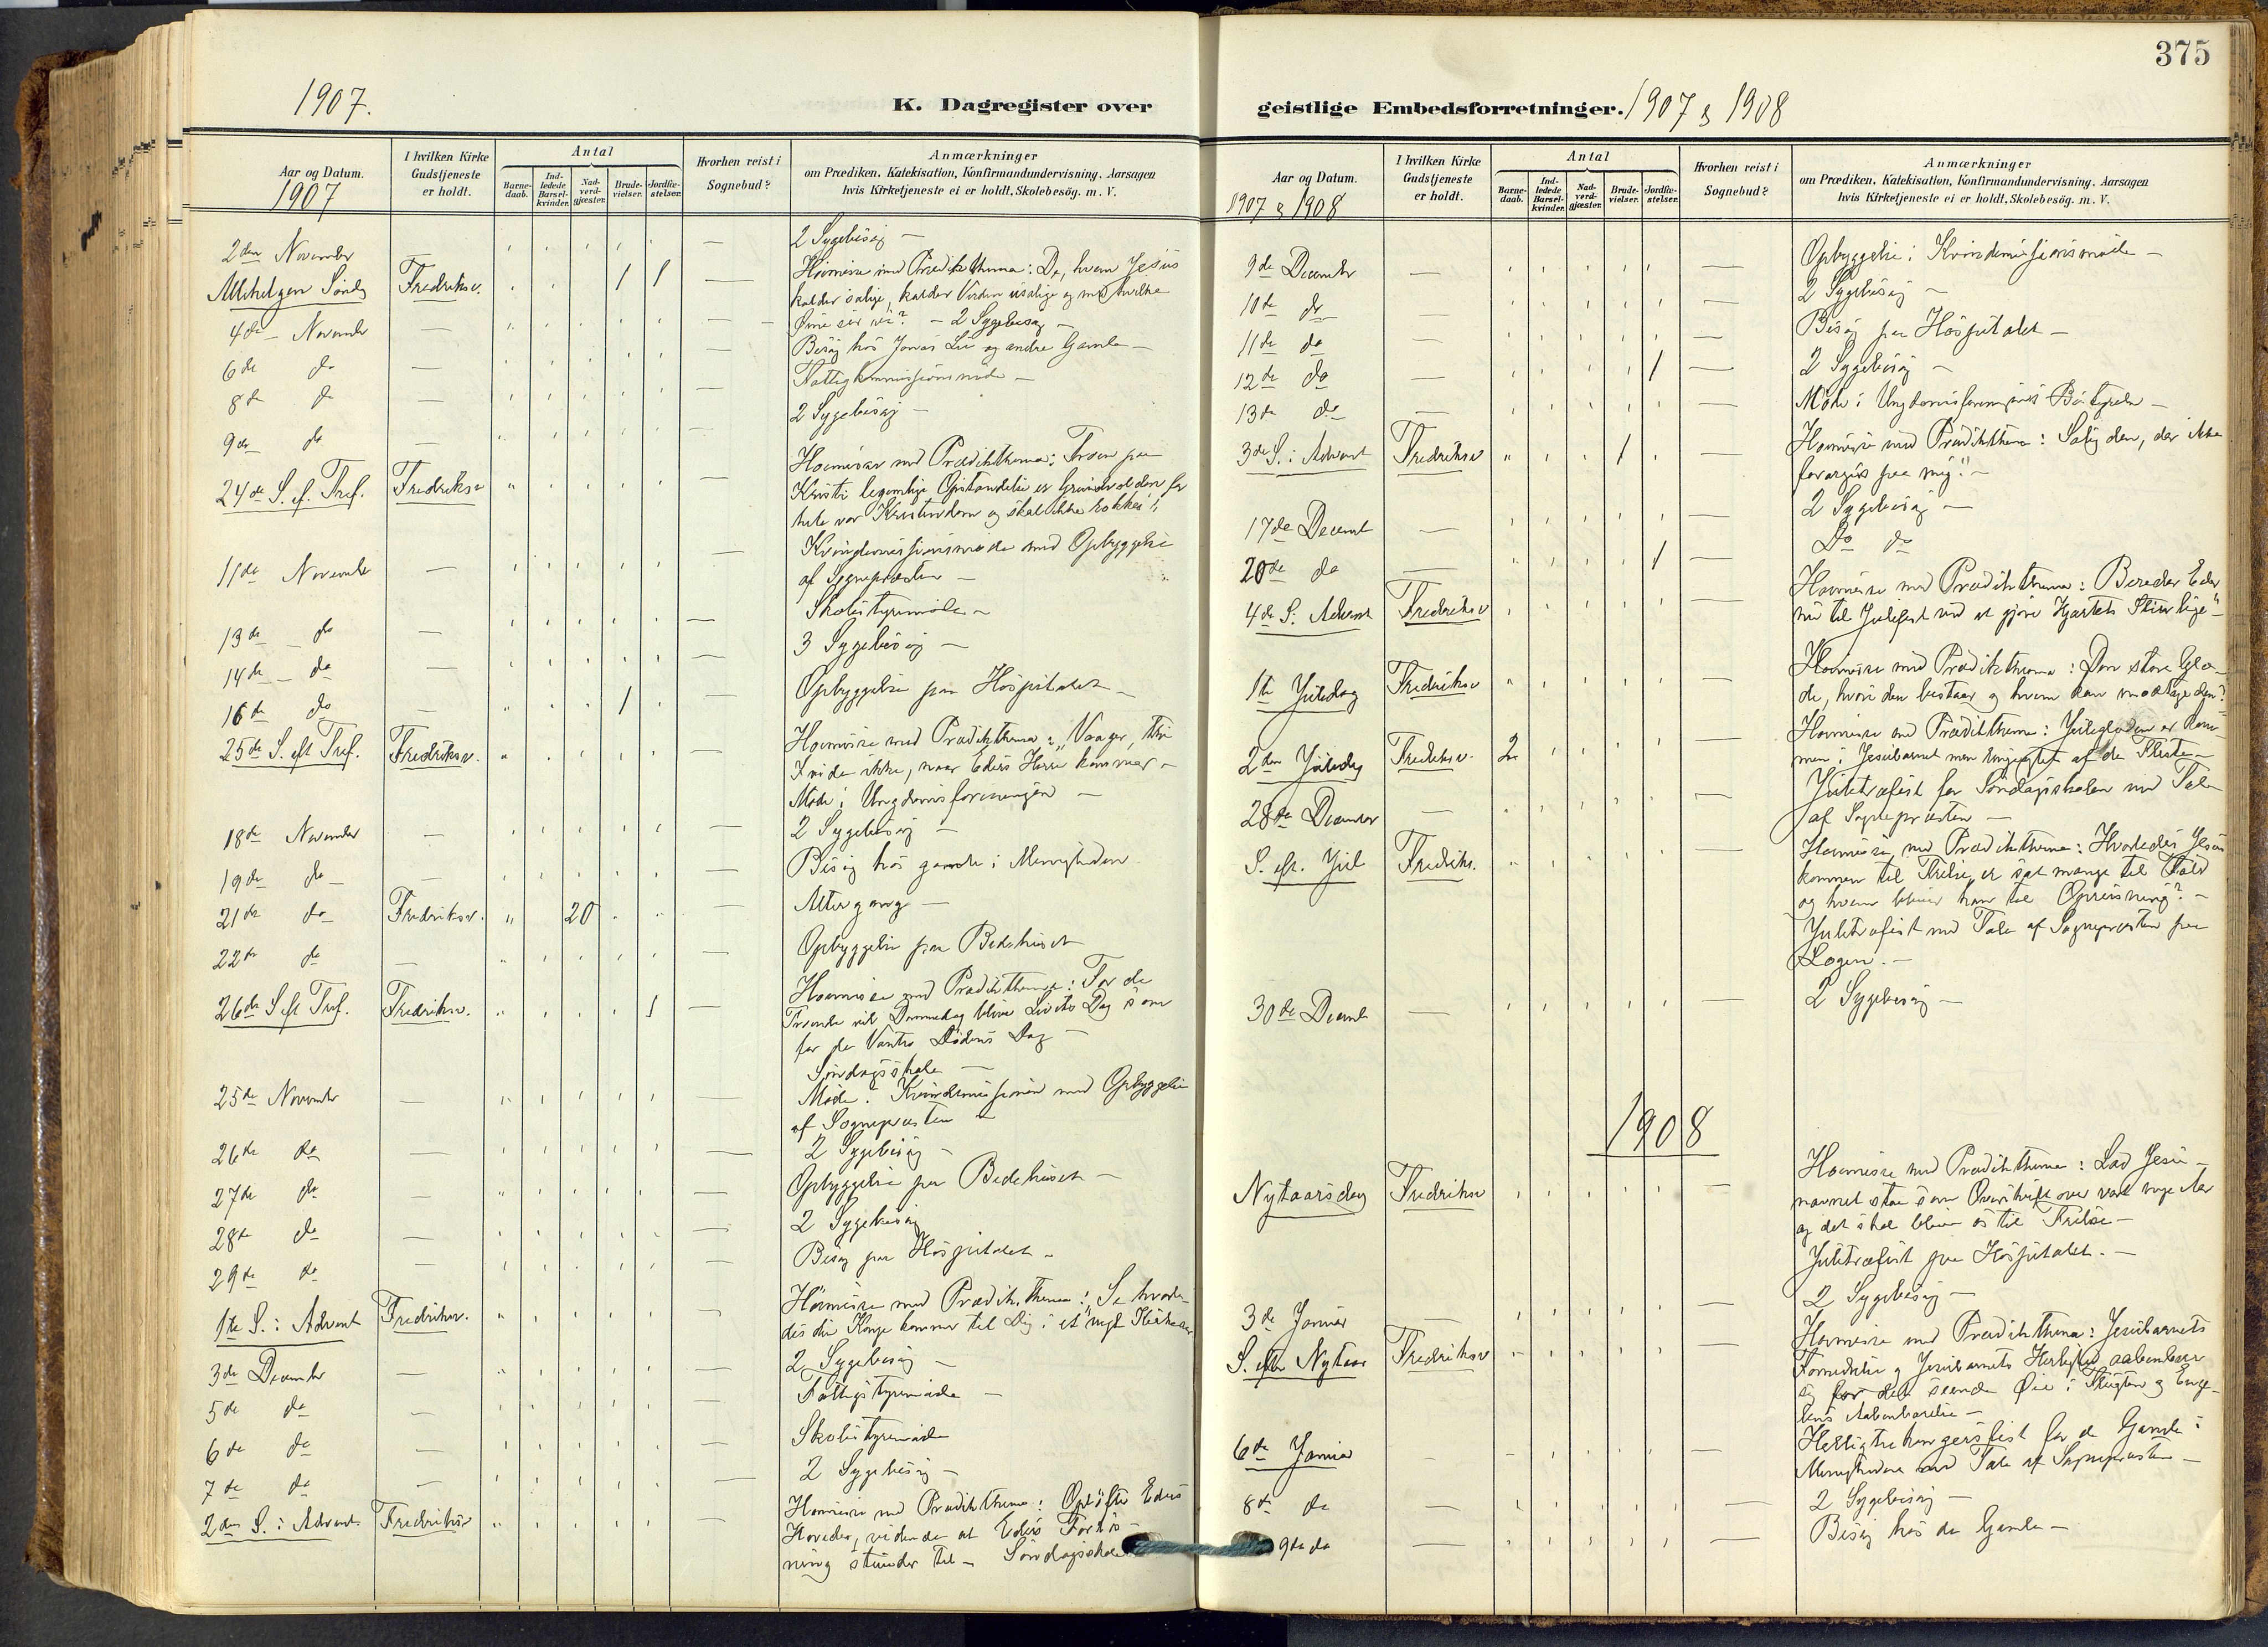 375
1907.
K. Dagregister over
geistlige Embedsforretninger. 1907 & 1908
Aar og Datum.
1907
I hvilken Kirke Gudstjeneste er holdt.
Antal
Barnedaab.
Indledede Barselkvinder.
Nadverdgjæster.
Brudevielser.
Jordfæstelser.
Hvorhen reist i Sognebud?
Anmærkninger
om Prædiken, Katekisation, Konfirmandundervisning, Aarsagen
hvis Kirketjeneste ei er holdt, Skolebesög. m. V.
2den November — 2 Sygebesøg —
Allehelgen Søndg Fredriksv. / / — Høimesse med Prædikthema: De, hvem Jesus
kalder salige, kalder Verden usalige og med hvilke
Øine ser vi? — 2 Sygebesøg —
4de November — Besøg hos Jonas Lie og andre Gamle —
6de do — Fattigkommissionsmøde —
8de do — 2 Sygebesøg —
9de do —
24de S. ef. Tref. Fredriksv Høimesse med Prædikthema: Troen paa
Kristi legemlige Opstandelse er Grundvolden for
hele vor Kristendom og skal ikke rokkes
11de November — Kvindemissionsmøde med Opbyggelse
af Sognepræsten —
13de do — Skolestyremøde —
14de do — 3 Sygebesøg —
16de do — / Opbyggelse paa Hospitalet —
25de S. eft Tref. Fredriksv. Høimesse med Prædikthema: "Vaager, thi
I vide ikke, naar Eders Herre kommer —
Møde i Ungdomsforeningen —
18de November — 2 Sygebesøg —
19de do — Besøg hos gamle i Menigheden
21de do Fredriksv. 20 — Altergang —
22de do — Opbyggelse paa Bedehuset
26de S eft Tref. Fredriksv. / — Høimesse med Prædikthema: For de
Troende vil Dommedag blive Livets Dag som
for de Vantro Dødens Dag —
Søndagsskole —
25de November — Møde i Kvindemissionen med Opbyggelse
af Sognepræsten —
26de do — 2 Sygebesøg —
27de do — Opbyggelse paa Bedehuset —
28de do — 2 Sygebesøg
29de do — Besøg paa Hospitalet —
1te S. i Advent Fredriksv. — Høimesse med Prædikthema: "Se hvorle-
des din Konge kommer til Dig i et nyt Kirkeaar
3de December — 2 Sygebesøg —
5de do — Fattigstyremøde —
6de do — Skolestyremøde
7de do — 2 Sygebesøg —
2den S. i Advent. Fredriksv Høimesse med Prædikthema: Opløfter Eders
Hoveder, vidende at Eders Forløs-
ning stunder til — Søndagsskole
Aar og Datum.
1907 & 1908
I hvilken Kirke Gudstjeneste er holdt.
Antal
Barnedaab.
Indledede Barselkvinder.
Nadverdgjæster.
Brudevielser.
Jordfæstelser.
Hvorhen reist i Sognebud?
Anmærkninger
om Prædiken, Katekisation, Konfirmandundervisning, Aarsagen
hvis Kirketjeneste ei er holdt, Skolebesög. m. V.
9de December — Opbyggelse i Kvindemissionsmøde —
10de do — 2 Sygebesøg —
11te do — Besøg paa Hospitalet —
12te do — / 2 Sygebesøg —
13de do — Møde i Ungdomsforeningens Bestyrelse —
3de S. i Advent Fredriksv / Høimesse med Prædikthema: Salig den, der ikke
forarges paa mig!" —
17de Decembr — 2 Sygebesøg —
20de do — / Do do
4de S. Advent Fredriksv Høimesse med Prædikthema: Bereder Eder
nu til Julefest ved at gjøre Hjertets Stier lige" —
1te Juledag Fredriksv Høimesse med Prædikthema: Den store Glæ-
de, hvori den bestaar og hvem kan modtage den?
2den Juledag Fredriksv. 2 Høimesse med Prædikthema: Juleglæden er kom-
men i Jesubarnet men ringeagtet af de Fleste —
28de December — Juletræfest for Søndagsskolen med Tale
af Sognepræsten —
S. eft. Jul Fredriks. Høimesse med Prædikthema: Hvorledes Jesus
kommen til Frelse, er sat mange til Fald
og hvem bliver han til Opreisning? —
Juletræfest med Tale af Sognepræsten paa
Logen. —
30de Decemb — 2 Sygebesøg —
1908
Nytaarsdag Fredriksv Høimesse med Prædikthema: Lad Jesu-
navnet staa som Overskrift over vort nye Aar
og det skal blive os til Frelse —
Juletræfest paa Hospitalet. —
3de Januar — 2 Sygebesøg —
S. efter Nytaar Fredriksv Høimesse med Prædikthema: Jesubarnets
Fornedrelse og Jesubarnets Herlighed aabenbarer
sig for det seende Øie i Flugten og Enge-
lens Aabenbarelse —
6de Januar — Helligtrekongersfest for de Gamle i
Menigheden med Tale af Sognepræsten —
8de do — 2 Sygebesøg —
9de do — Besøg hos de Gamle —